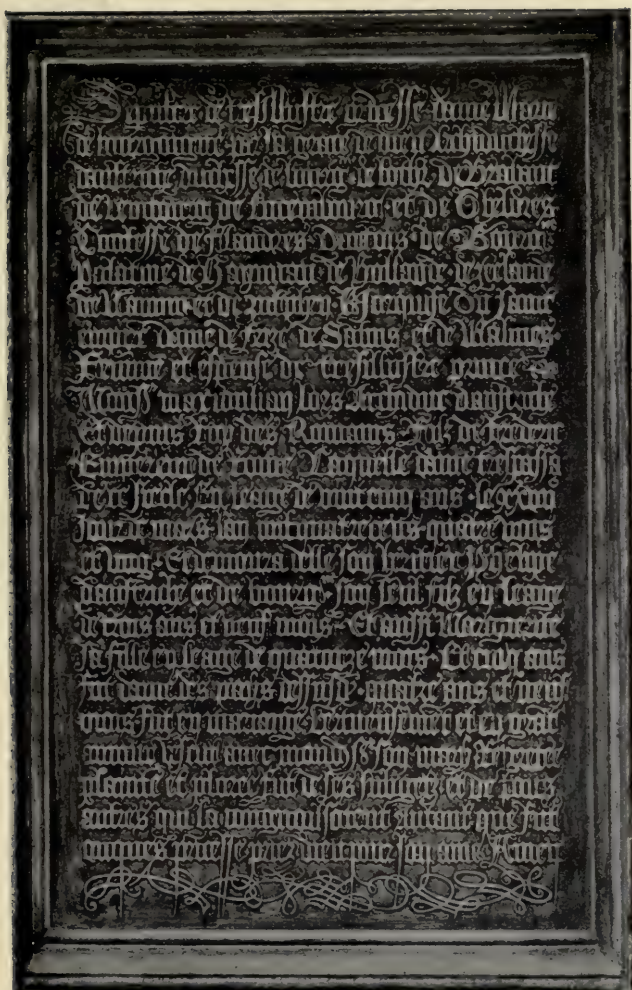 Sepulture de tresillustre princesse dame Marie
de bourgoingne par la grace de dieu archiducesse
daustrice ducesse de bourgne de lothr de Brabant
de Lembourg de Luxembourg et de Gheldres
Contesse de Flandres Dartois de Bourgne
Palatine de Haynnau de hollande de zelande
de Namur et de zutphen Marquise Du saint
empire dame de frise de Salins et de Malines
Femme et espeuse de tresillustre prince
Monsr maximilian lors Archiduc daustrice
Et depuis Roy des Romains Filz de frederic
Empereur de romme Laquelle dame trespassa
de ce siecle En leage de vint cinq ans le xxvij
Jour de mars lan mil quatre cens quatre vins
et ung Et demoura delle son heritier Phelippe
daustrice et de bourgne son seul filz en leage
de trois ans et neuf mois Et aussi Marguerite
sa fille en leage de quatorze mois Et cinq ans
fut dame des pays dessusd quatre ans et neuf
mois fut en mariage vertueusement et en grant
amour vesqui avec mondsr son mary Regretee
plainte et plouree fut de ses subgetz et de tous
autres qui la cognoissoient autant que fut
oncques princesse priez dieu pour son ame Amen